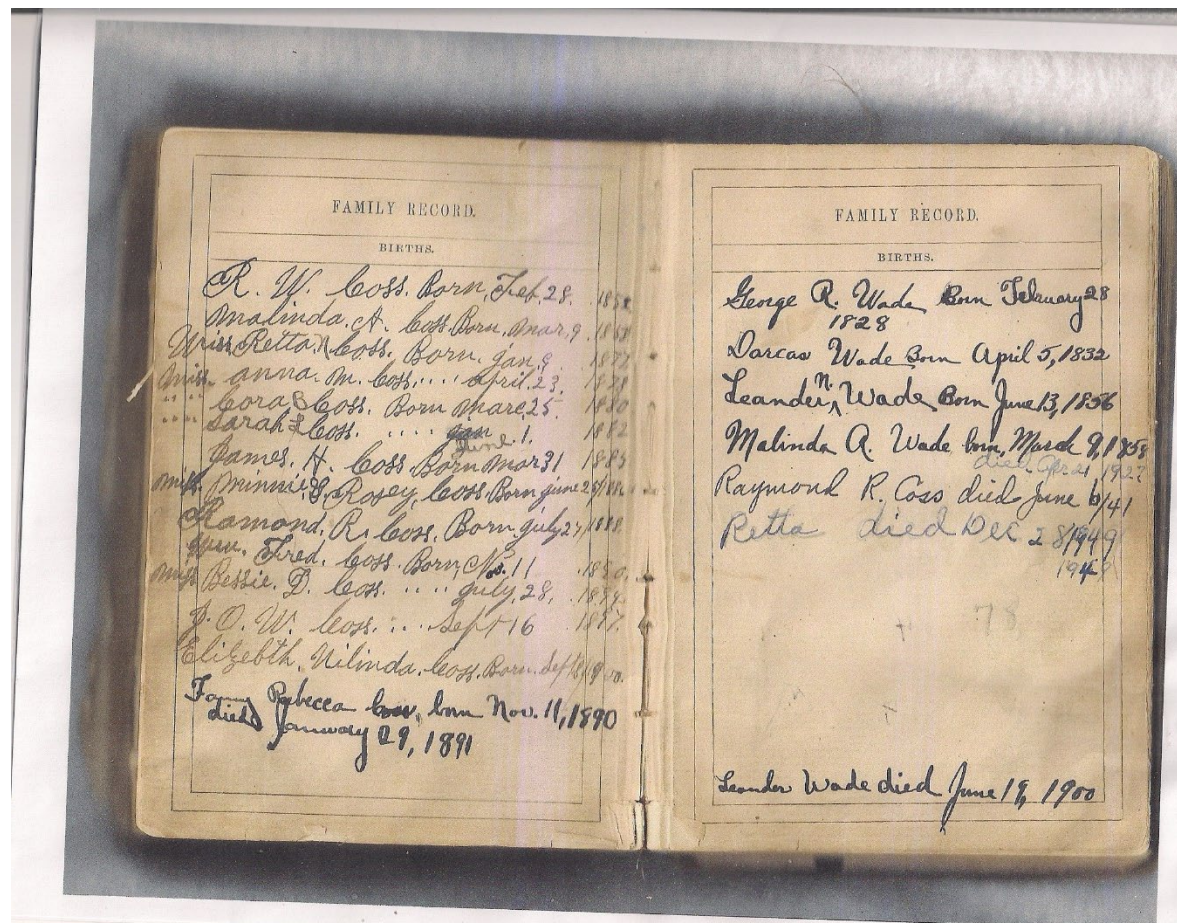 FAMILY RECORD.
BIRTHS.
R. W. Coss. Born, Feb. 28.
Malinda. A. Coss. Born. Mar. 9.
Miss Retta Coss. Born. Jan. 9. 1877
Miss. anna. M. Coss. .... april. 23.
" " " Cora E Coss. Born Marc 25. 1880
" " " Sarah Coss. .... June. 1. 1882
James. H. Coss. Born Mar 31
Miss Minnie E. Rosey, Coss. Born June
Ramond. R. Coss. Born. july 27/1888.
Fred. Coss. Born, Nov. 11 1890.
Miss Bessie. D. Coss. .... july, 28,
J. O. W. Coss. .... Sept 16 1897.
Elizebth. Vilinda. Coss. Born.
Rebecca Coss, born Nov. 11, 1890
died January 29, 1891
FAMILY RECORD.
BIRTHS.
George R. Wade Born February 28
1828
Darcas Wade Born April 5, 1832
Leander N. Wade Born June 13, 1856
Malinda A. Wade born, March 9, 1858
died 1927
Raymond R. Coss died June 6/41
Retta died Dec 28/1949
1949
78
Leander Wade died June 19, 1900